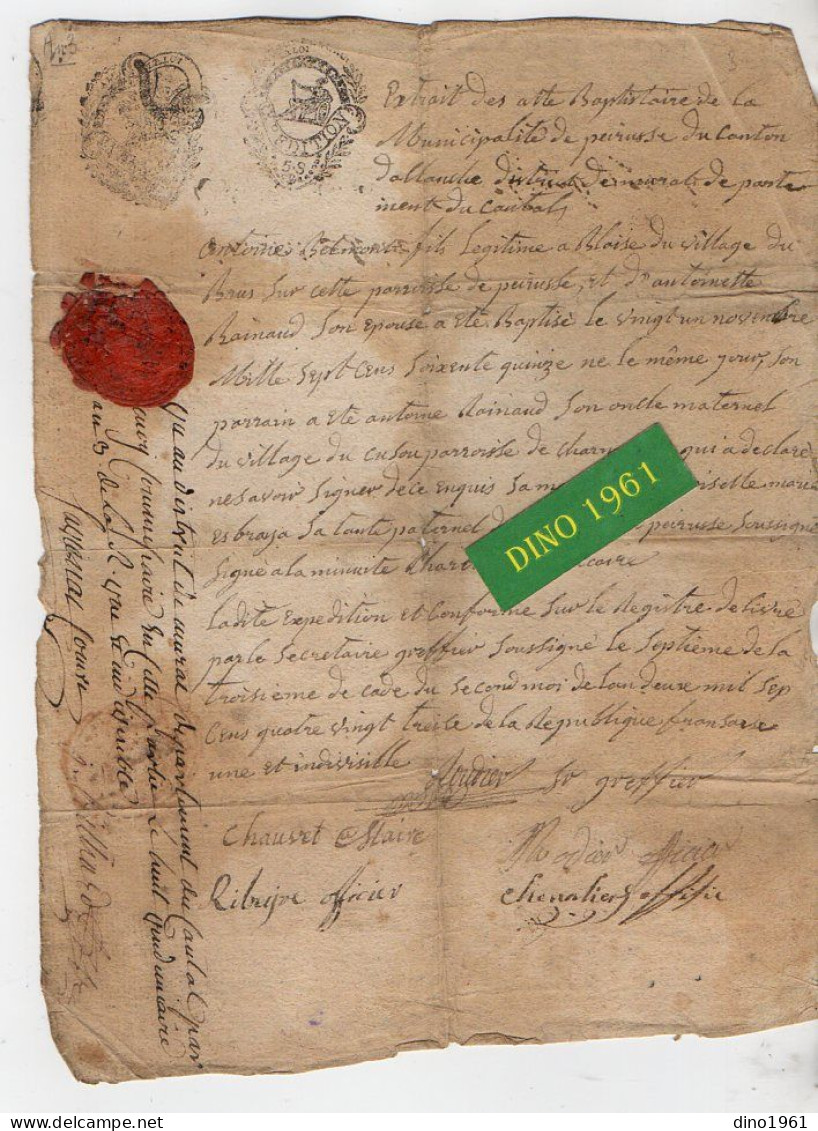 EXPEDITION
5.S.
Extrait des atte Baptistaire de la
Municipalité de peirusse du Canton
dallanche district de murat de parte
ment du Cantal
antoine Belmont fils legitime a Blaise du village du
Brus sur cette parroisse de peirusse, et d'antoinette
Rainaud Son epouse a eté Baptisé le vingt un novembre
Mille sept Cens Soixente quinze ne le même jour, son
parrain a ete antoine Rainaud Son oncle maternel
du village du Cusou parroisse de qui a declaré
ne savoir signer de ce enquis Sa maria
esbraja Sa tante paternel peirusse soussigné
signé a la minuite
ladite Expedition et Conforme Sur le Registre de livré
par le Secretaire greffier soussigné le Septième de la
troisième de cade du Second moi de lan deuxe mil sep
Cens quatre vingt treise de la Republique fransaise
une et indivisible
Sr greffier
Chauvet Maire
officier
officier
Chevalier officié
Vu au district de murat departement du Cantal par
le huit
au 3 de la R. une et indivisible
DINO 1961
dino1961